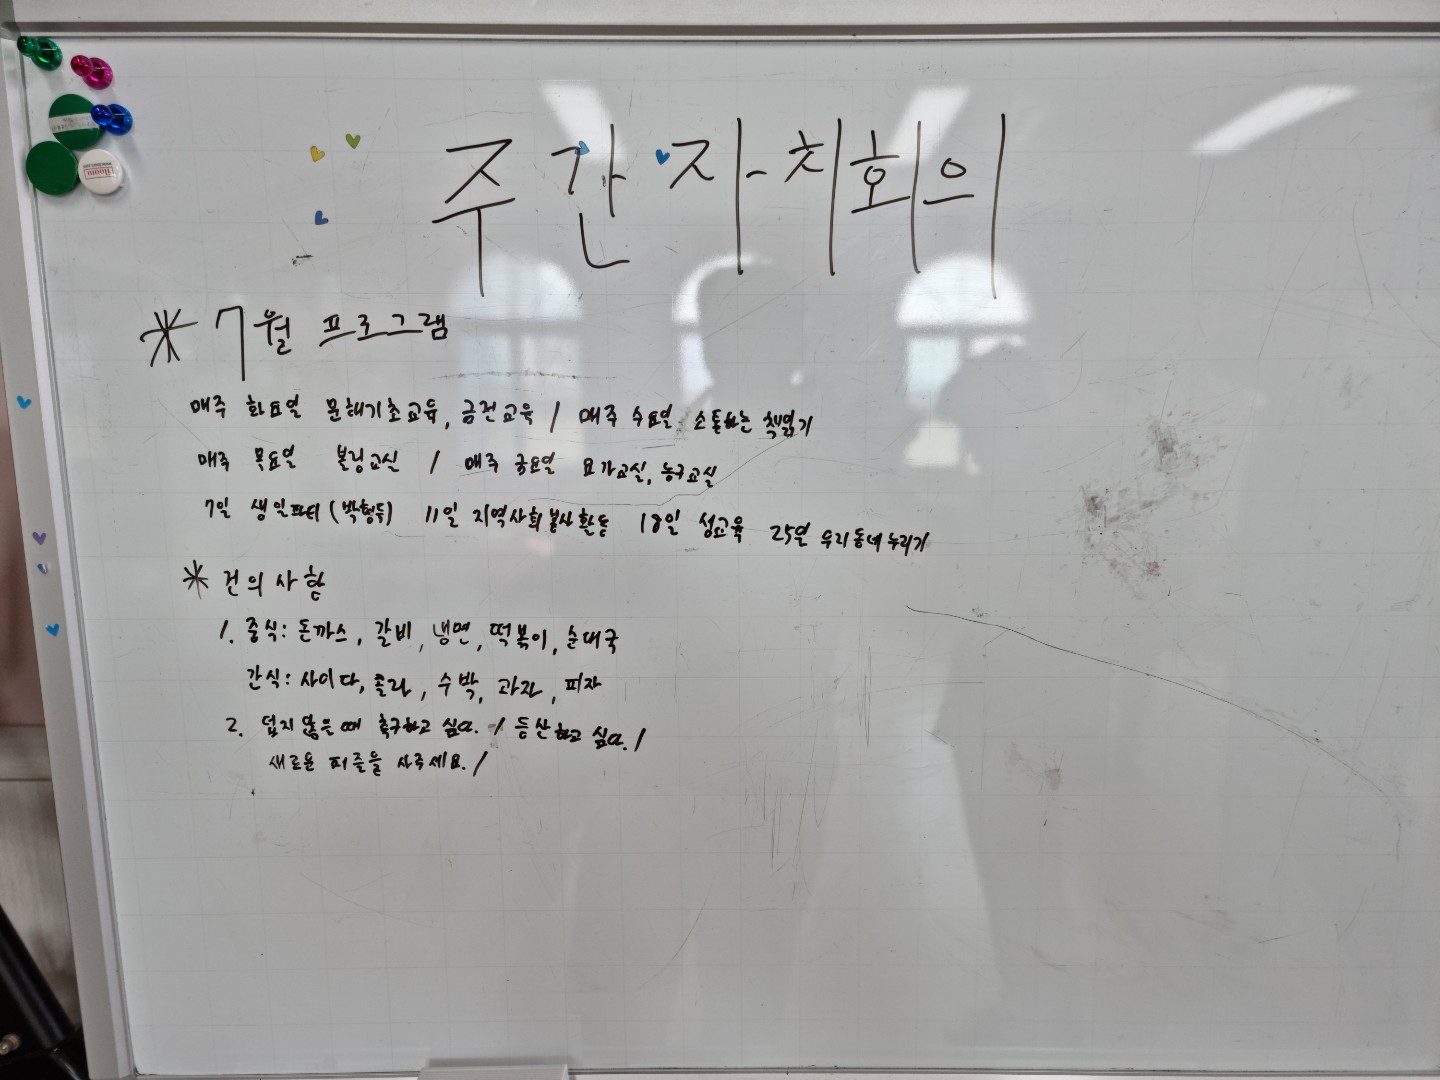 주간자치회의
* 7월 프로그램
매주 화요일 문해기초교육, 금전교육 / 매주 수요일 소통하는 책읽기
매주 목요일 볼링교실 / 매주 금요일 요가교실, 농구교실
7일 생일파티 (박형두) 11일 지역사회봉사활동 18일 성교육 25일 우리동네누리기
* 건의사항
1. 중식: 돈까스, 갈비, 냉면, 떡볶이, 순대국
간식: 사이다, 콜라, 수박, 과자, 피자
2. 덥지 않은 때 축구하고 싶다. / 등산하고 싶다. /
새로운 퍼즐을 사주세요. /